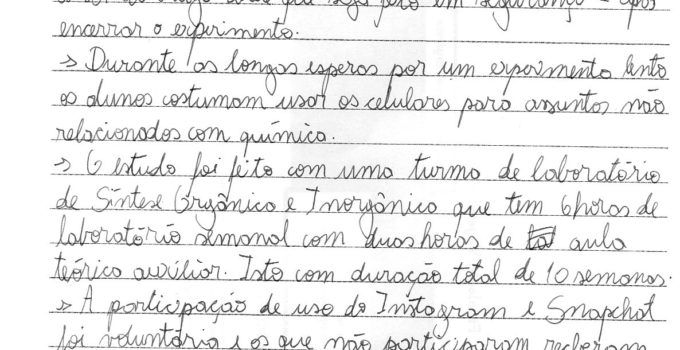 em segurança - após
encerrar o experimento.
→ Durante as longas esperas por um experimento lento
os alunos costumam usar os celulares para assuntos não
relacionados com química.
→ O estudo foi feito com uma turma de laboratório
de Síntese Orgânica e Inorgânica que tem 6 horas de
laboratório semanal com duas horas de aula
teórica auxiliar. Isto com duração total de 10 semanas.
→ A participação de uso do Instagram e Snapchat
foi voluntária e os que não participaram receberam